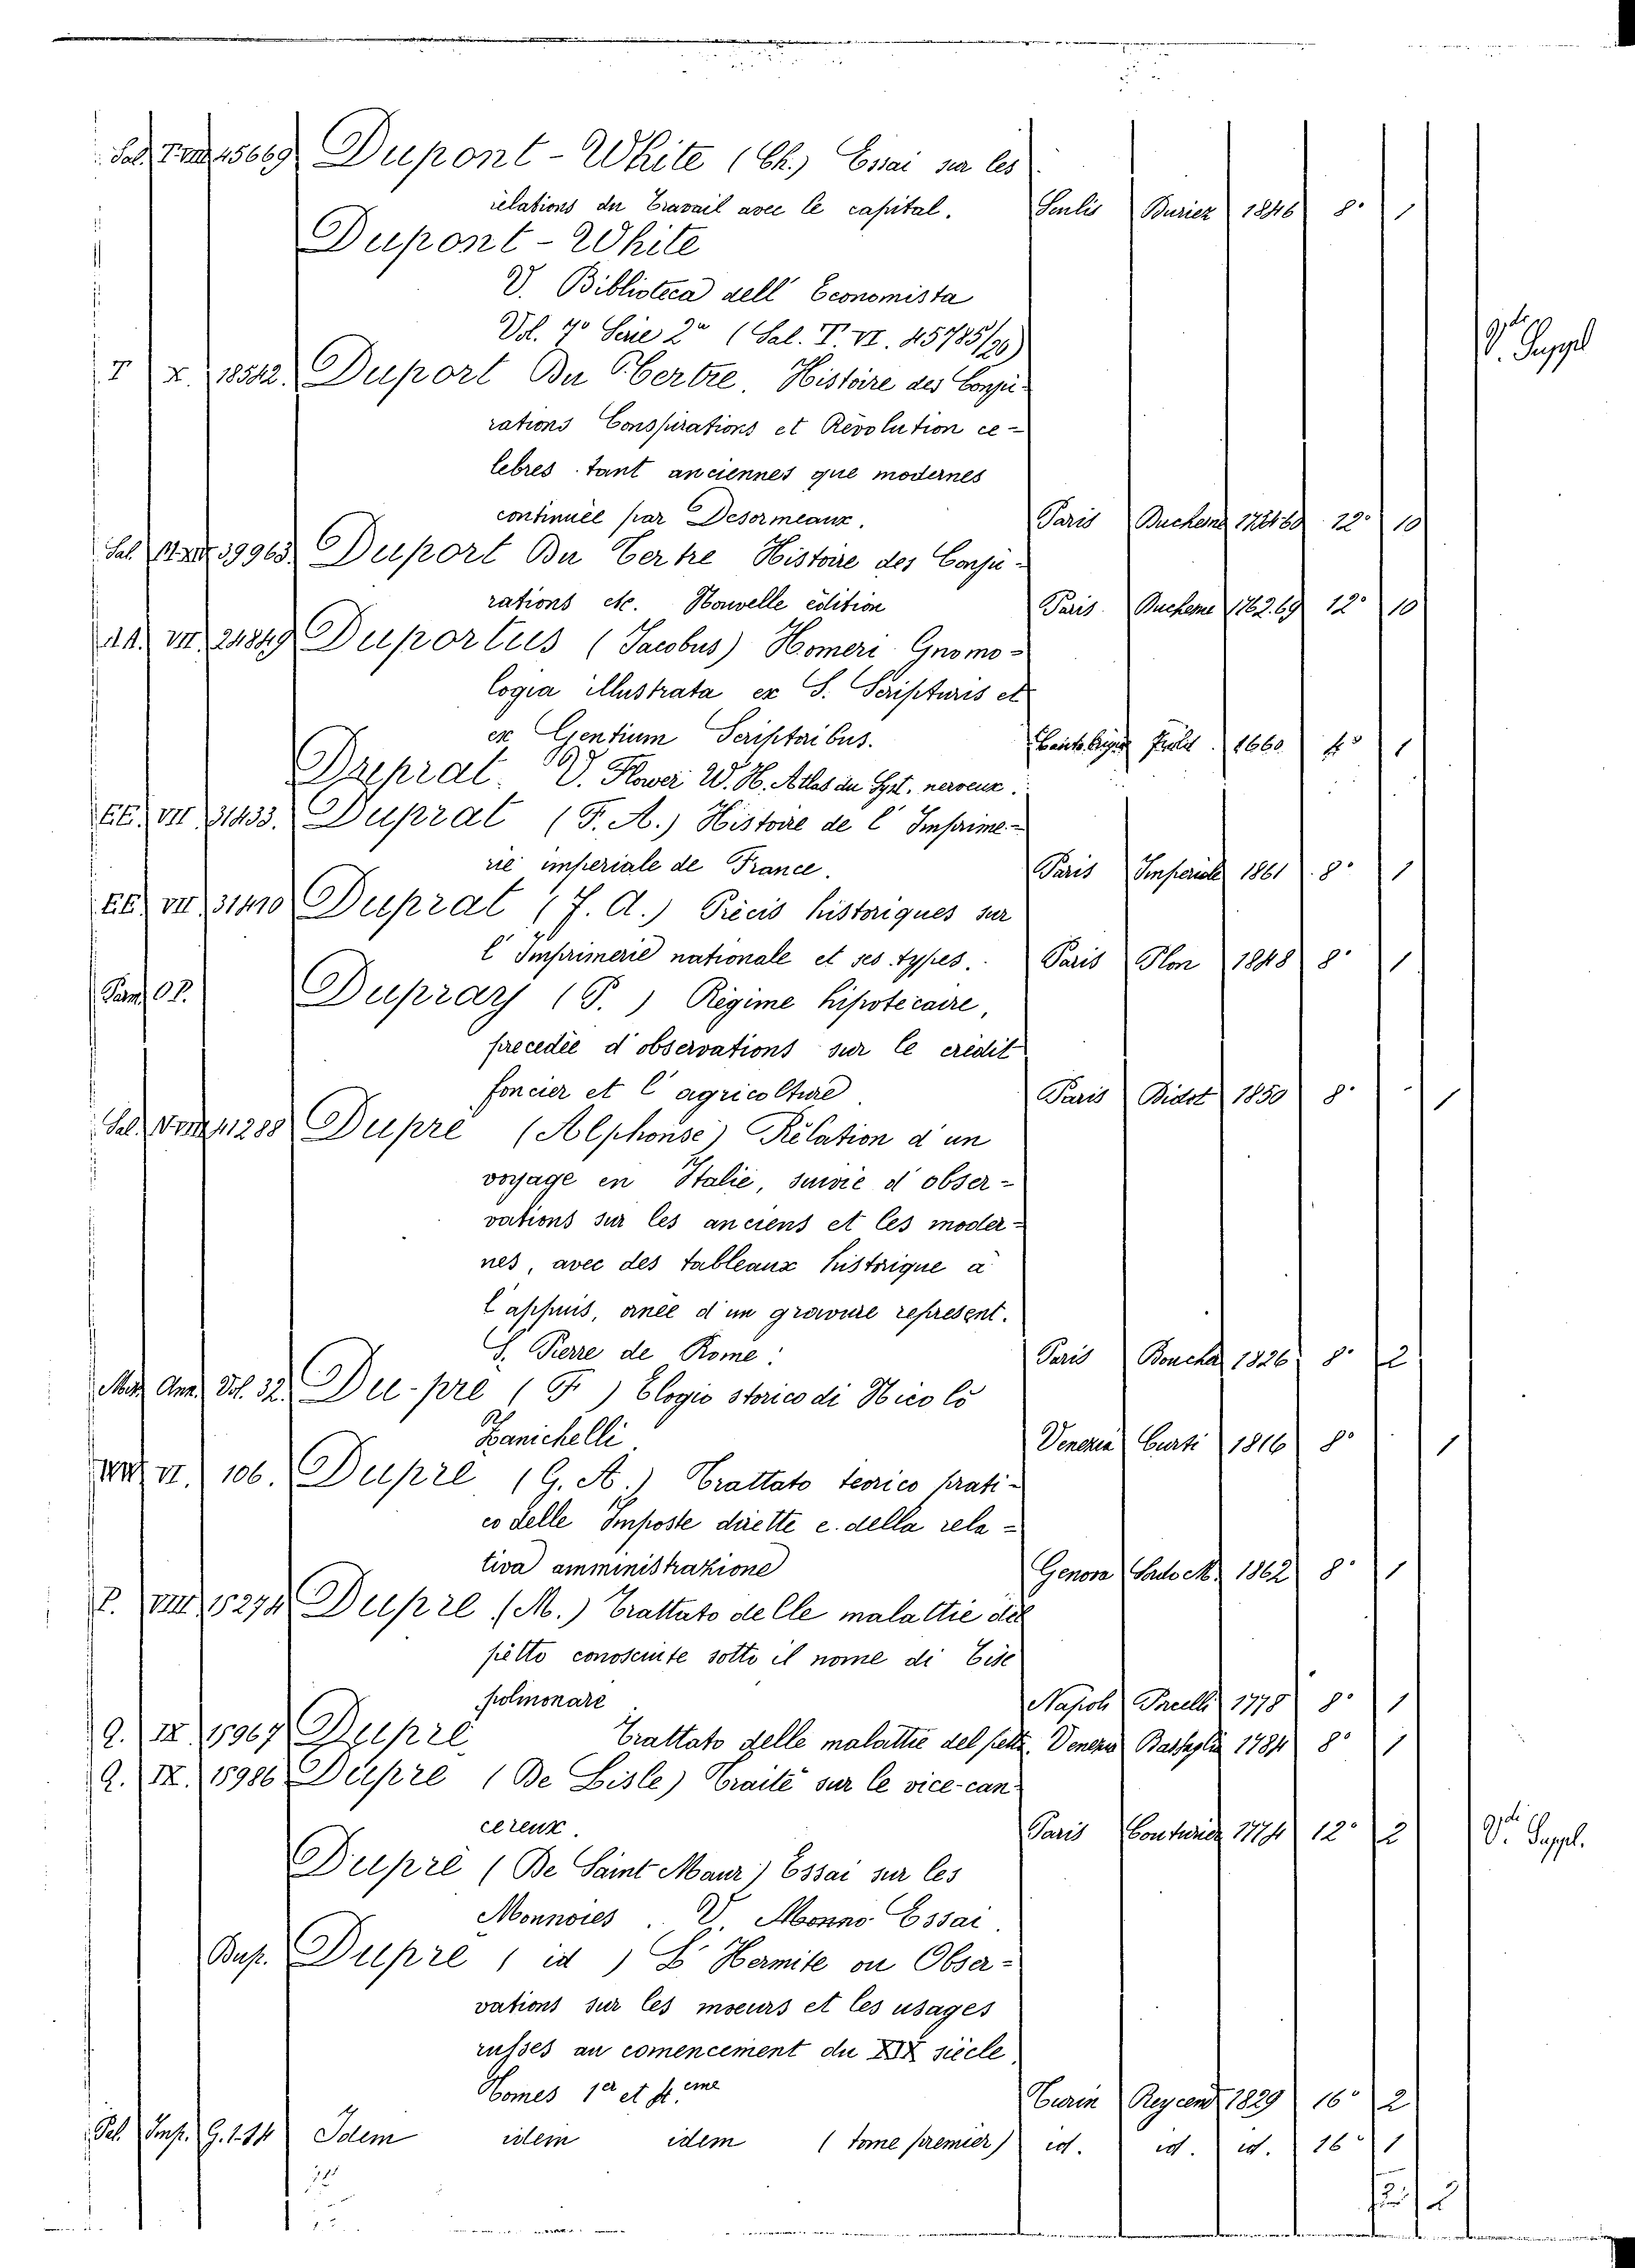 Sal. 45669 Dupont-White (Ch.) Essai sur les
relations du Travail avec le capital. Senlis Burier 1846 8° 1
Dupont-White
V. Biblioteca dell' Economista
Vol. 4° Serie 2ª (Sal. T. VI. 45785/26) V. Suppl
T X. 18542. Duport Du Tertre. Histoire des Conju-
rations Conspirations et Révolution ce-
lebres tant anciennes que modernes
continuèe par Desormeaux. Paris Duchene 12° 10
Sal 39963. Duport Du Tertre Histoire des Conju-
rations etc. Nouvelle édition Paris Duchene 1762.69 12° 10
VII. 24849 Duportus (Jacobus) Homeri Gnomo-
logia illustrata ex S. Scripturis et
ex Gentium Scriptoribus. 1660 4° 1
Duprat. V. Flower W. H. Atlas du Syst. nerveux.
EE. VII 31433. Duprat (F. A.) Histoire de l' Imprime-
rie imperiale de France. Paris Imperiale 1861 8° 1
EE. VII 31410 Duprat (F. A.) Précis historiques sur
l' Imprimerie nationale et ses types. Paris Plon 1848 8° 1
Dupray (P. ) Régime hipotecaire,
precedée d' observations sur le crédit
foncier et l' agricolture Paris Didot 1850 8° 1
Sal. 41288 Dupré (Alphonse) Rélation d' un
voyage en Italie, suivie d' obser-
vations sur les anciens et les moder-
nes, avec des tableaux historique a
l' appuis, ornée d' un gravure represent.
S. Pierre de Rome. Paris Boucher 1826 8° 2
Ann. Vol. 32. Du-pre ( F ) Elogio storico di Nicolò
Zanichelli Venezia Curti 1816 8° 1
VI. 106. Dupré (G. A.) Trattato teorico prati-
co delle Imposte dirette e. della rela-
tiva amministrazione Genova 1862 8° 1
P. VIII 15274 Dupré (M.) Trattato delle malattie del
petto conosciute sotto il nome di Tise
polmonare Napoli 1778 8° 1
Q. IX 15967 Dupré Trattato delle malattie del petto. Venezia Bassaglia 1784 8° 1
Q. IX. 15986 Dupré (De Lisle) Traité sur le vice-can-
cereux. Paris Couturier 1774 12° 2 V. Suppl.
Dupré (De Saint Maur) Essai sur les
Monnoies. V. Monno Essai.
Dup. Dupré ( id ) L' Hermite ou Obser-
vations sur les moeurs et les usages
russes au comencement du XIX siècle.
Tomes 1er et 4.eme Turin Reycend 1829 16° 2
Sal. Imp. G. 1.14 Idem idem idem (tome premier) id. id. id. 16° 1